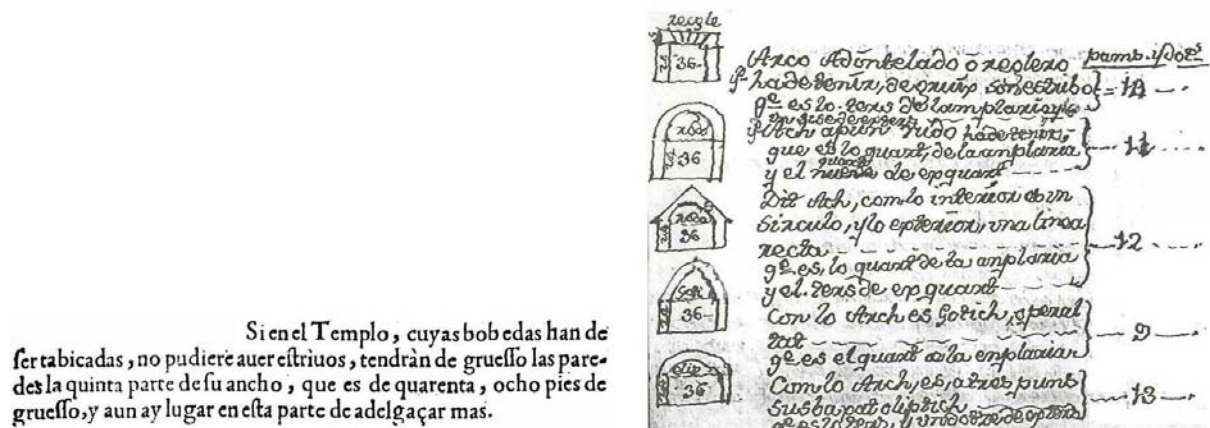 Si en el Templo, cuyas bobedas han de
ser tabicadas, no pudiere auer estriuos, tendràn de gruesso las pare-
des la quinta parte de su ancho, que es de quarenta, ocho pies de
gruesso, y aun ay lugar en esta parte de adelgaçar mas.
recgle
36
Arco Adintelado ò reglero pams. y dots
ha de tenir, de gruix son estribo = 12
qe es lo ters de lamplaria y
36
Arch apun rudo ha de tenir,
que es lo quart, de la anplaria 11
y el de exquart
36
Dit Arch, com lo interior es un
sirculo, y lo exterior, una linea
recta 12
qe es, lo quart de la anplaria
y el ters de ex quart
Goti
36
Con lo Arch es Gotich, o peral
tat 9
qe es el quart de la enplaria
elip
36
Com lo Arch, es, a tres puns
13